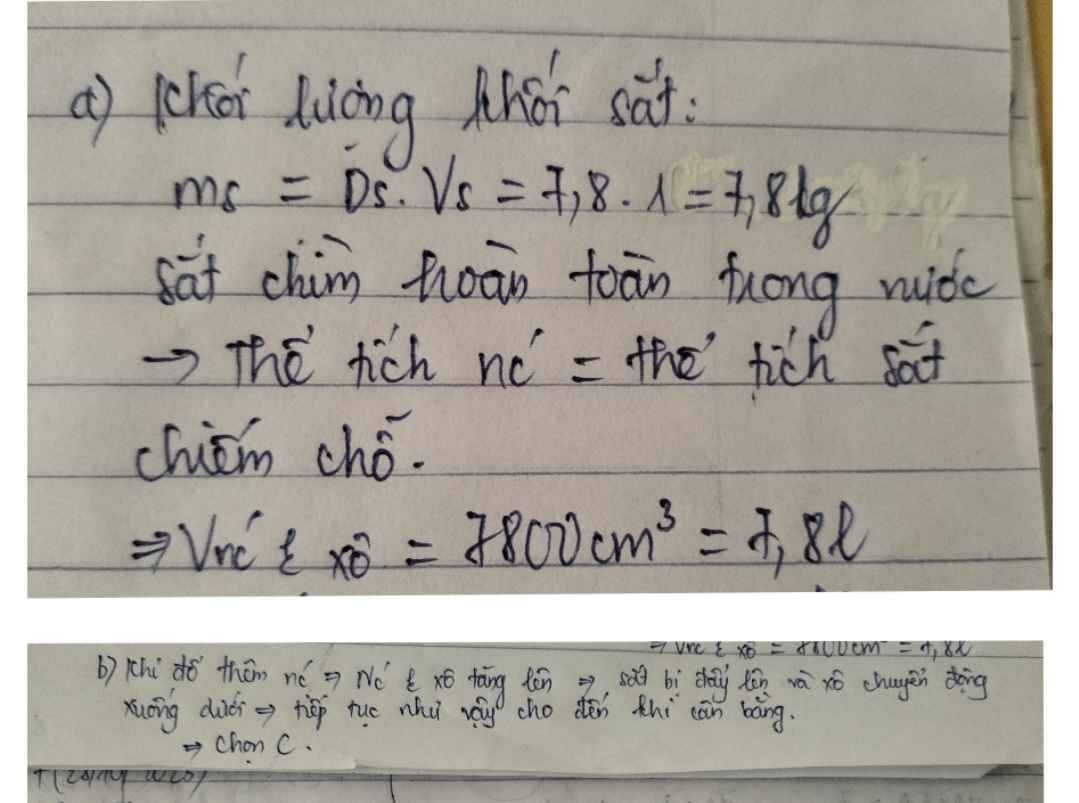 a) Khối lượng khối sắt:
ms = Ds. Vs = 7,8. 1 = 7,8kg
sắt chìm hoàn toàn trong nước
→ Thể tích nć = thể tích sắt
chiếm chỗ.
⇒ Vnć ξ xô = 7800cm³ = 7,8l
⇒ Vnć ξ xô = 7800cm³ = 7,8l
b) Khi đổ thêm nć ⇒ Nć ξ xô tăng lên ⇒ sắt bị đẩy lên và xô chuyển động
xuống dưới ⇒ tiếp tục như vậy cho đến khi cân bằng.
⇒ Chọn C.